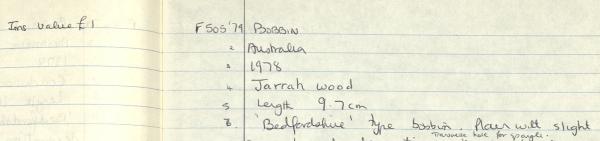 Ins value £1
F505'79 BOBBIN
2 Australia
3 1978
4 Jarrah wood
5 Length 9.7cm
6. 'Bedfordshire' type bobbin. Plain with slight
Transverse hole for spangle.